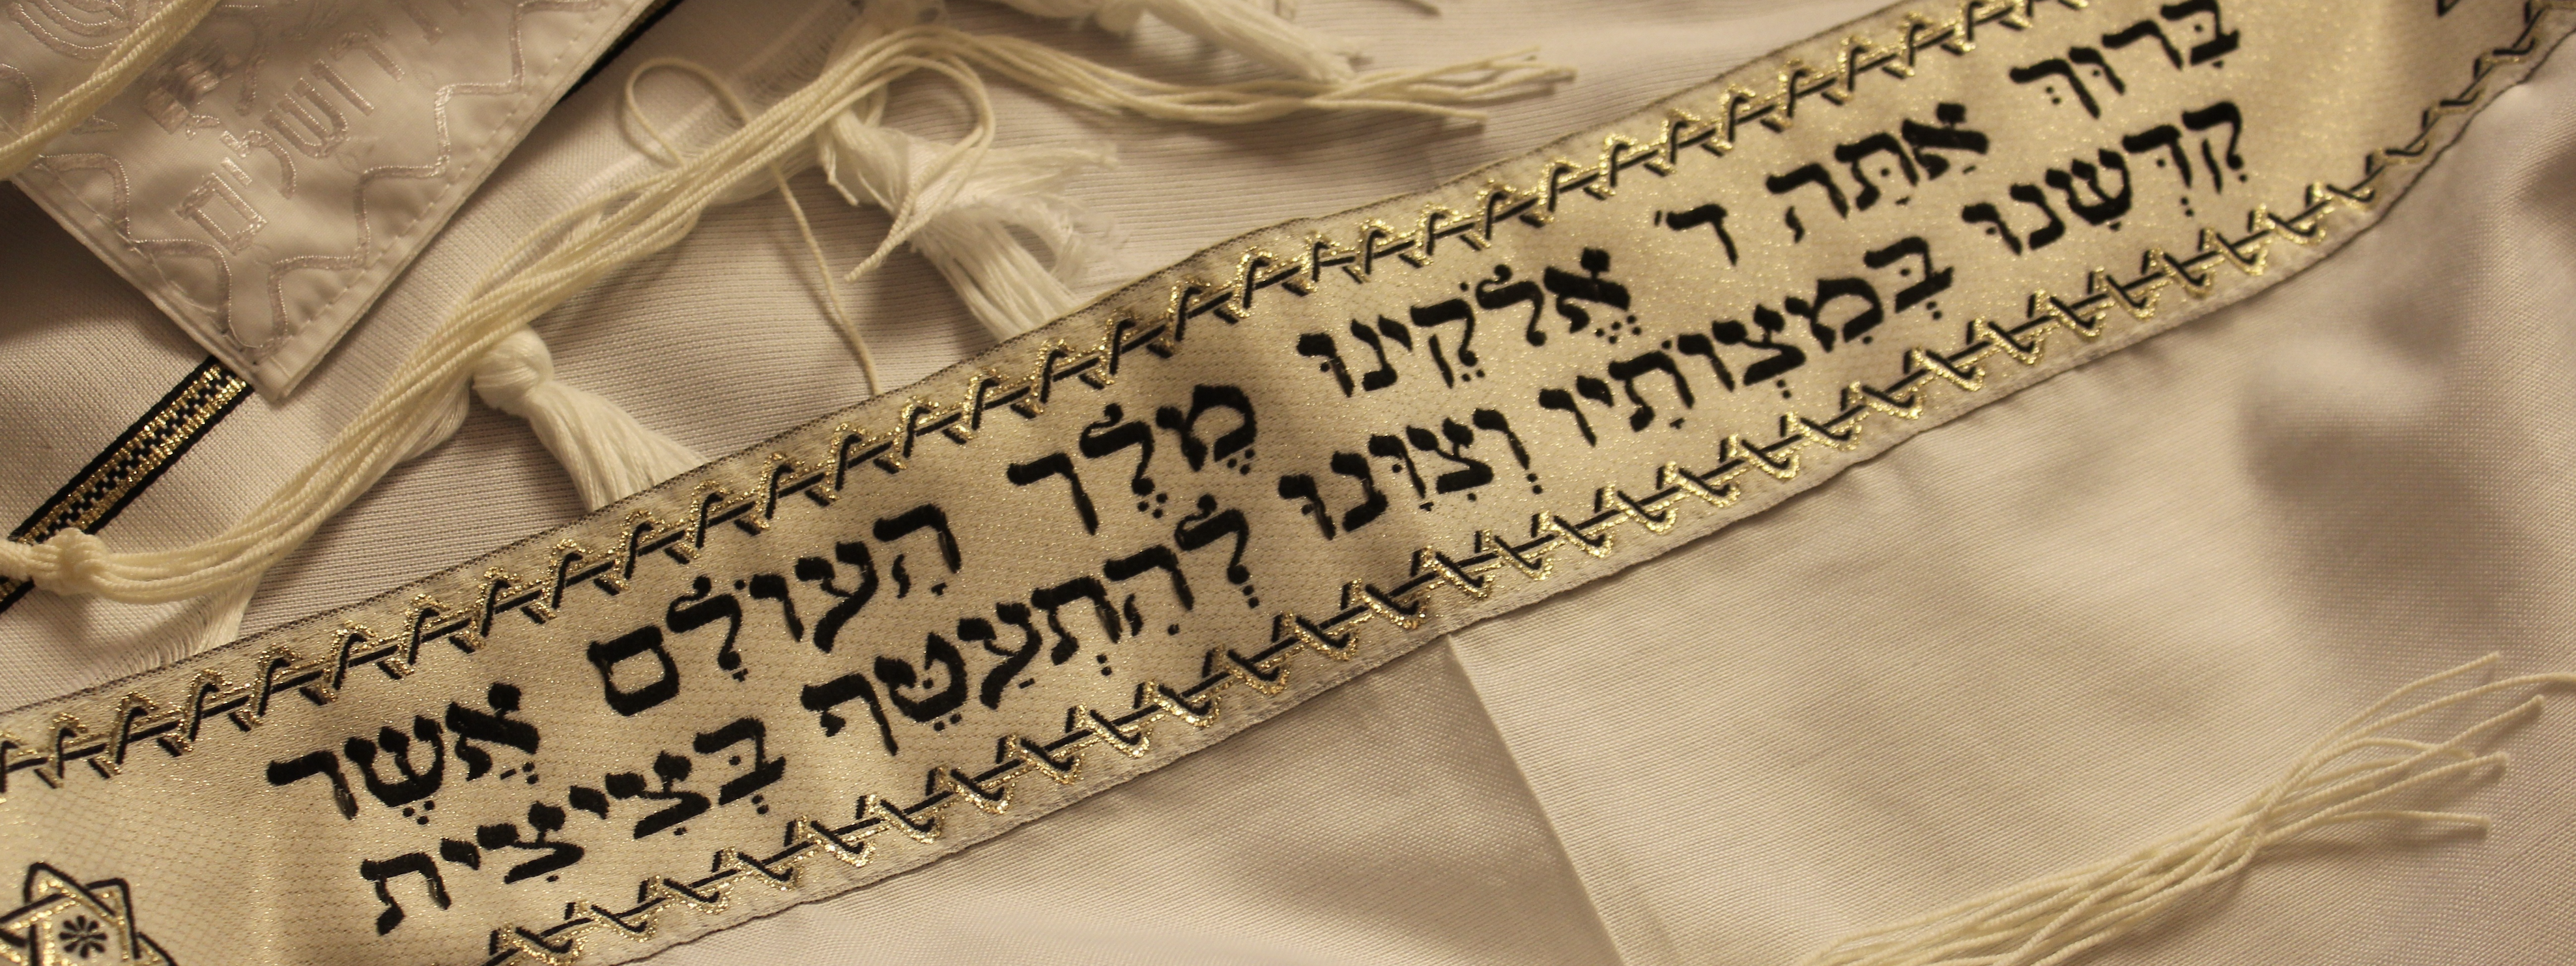 בָּרוּךְ אַתָּה ד' אֱלֹקֵינוּ מֶלֶךְ הָעוֹלָם אֲשֶׁר
קִדְּשָׁנוּ בְּמִצְוֹתָיו וְצִוָּנוּ לְהִתְעַטֵּף בְּצִיצִית
ירושלים